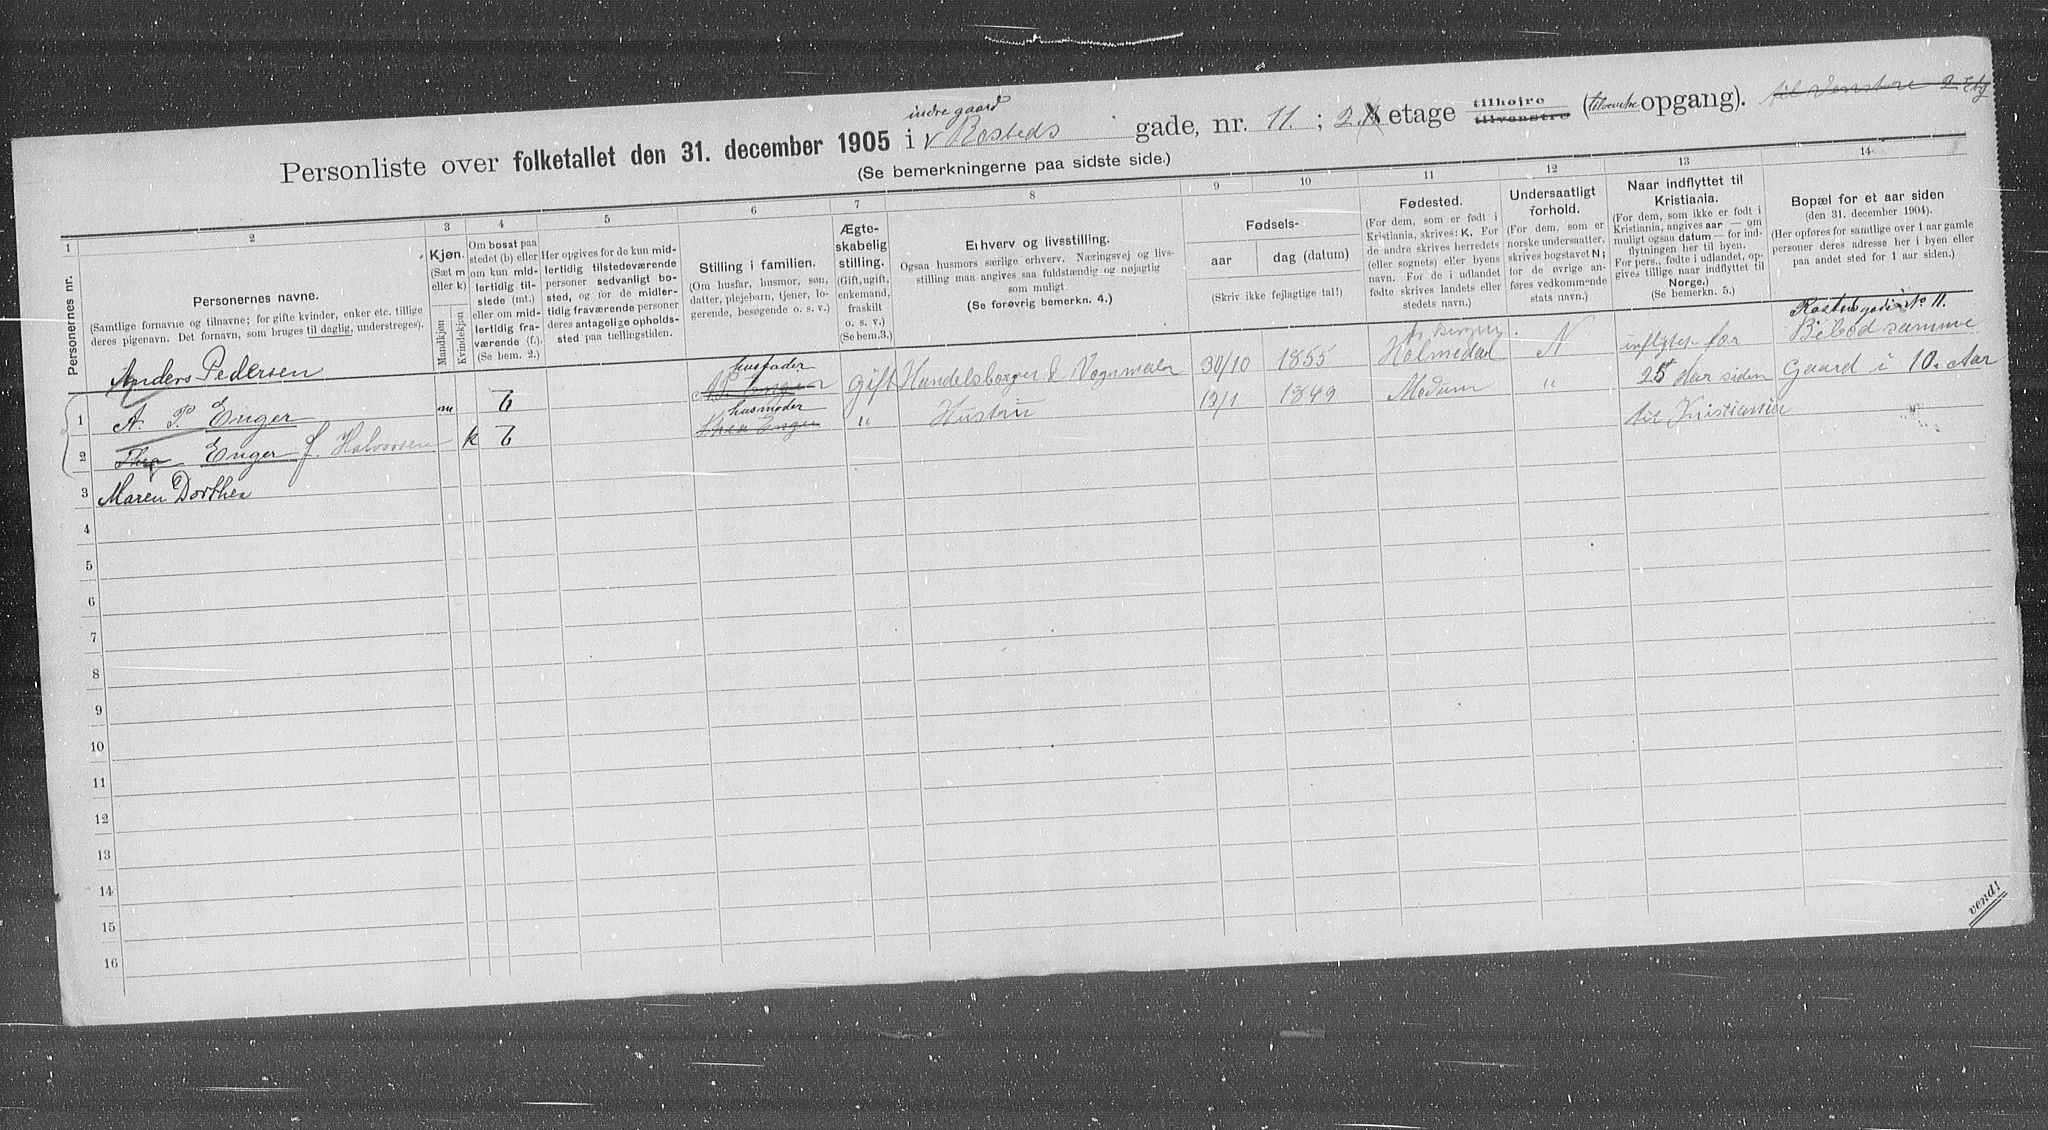 indre gaard
Personliste over folketallet den 31. december 1905 i v Rosteds gade, nr. 11. ; 2 etage tilhøjre tilvenstre (tilvenstre opgang). til Venstre 2 Etg
(Se bemerkningerne paa sidste side.)
1 2 3 4 5 6 7 8 9 10 11 12 13 14
Personernes nr.
Personernes navne.
(Samtlige fornavne og tilnavne; for gifte kvinder, enker etc. tillige
deres pigenavn. Det fornavn, som bruges til daglig, understreges).
Kjøn.
(Sæt m
eller k)
Mandkjøn
Kvindekjøn
Om bosat paa
stedet (b) eller
om kun mid-
lertidig til-
stede (mt.)
eller om mid-
lertidig fra-
værende (f.).
(Se bem. 2.)
Her opgives for de kun mid-
lertidig tilstedeværende
personer sedvanlig bo-
sted, og for de midler-
tidig fraværende personer
deres antagelige opholds-
sted paa tællingstiden.
Stilling i familien.
(Om husfar, husmor, søn,
datter, plejebarn, tjener, lo-
gerende, besøgende o. s. v.)
Ægte-
skabelig
stilling.
(Gift, ugift,
enkemand,
fraskilt
o. s. v.)
(Se bem. 3.)
Erhverv og livsstilling.
Ogsaa husmors særlige erhverv. Næringsvej og livs-
stilling maa angives saa fuldstændig og nøjagtig
som muligt.
(Se forøvrig bemerkn. 4.)
Fødsels-
aar
dag (datum)
(Skriv ikke fejlagtige tal!)
Fødested.
(For dem, som er født i
Kristiania, skrives: K. For
de andre skrives herredets
(eller sognets) eller byens
navn. For de i udlandet
fødte skrives landets eller
stedets navn.)
Undersaatligt
forhold.
(For dem, som er
norske undersaatter,
skrives bogstavet N;
for de øvrige an-
føres vedkommende
stats navn.)
Naar indflyttet til
Kristiania.
(For dem, som ikke er født i
Kristiania, angives aar — om
muligt ogsaa datum — for ind-
flytningen her til byen.
For pers., fødte i udlandet, op-
gives tillige naar indflyttet til
Norge.)
(Se bemerkn. 5.)
Bopæl for et aar siden
(den 31. december 1904).
(Her opføres for samtlige over 1 aar gamle
personer deres adresse her i byen eller
paa andet sted for 1 aar siden.)
Anders Pedersen
1 A. P. Enger m b husfader gift Handelsborger & Vognmaler 30/10 1855 Holmedal N indflyttet for 25 Aar siden til Kristiania
Rostedsgade No 11.
Bebod samme
Gaard i 10. Aar
2 Thea Enger f. Halvorsen k b husmoder Thea Enger " Hustru 19/1 1849 Modum "
3 Maren Dorthea
4
5
6
7
8
9
10
11
12
13
14
15
16
vend!